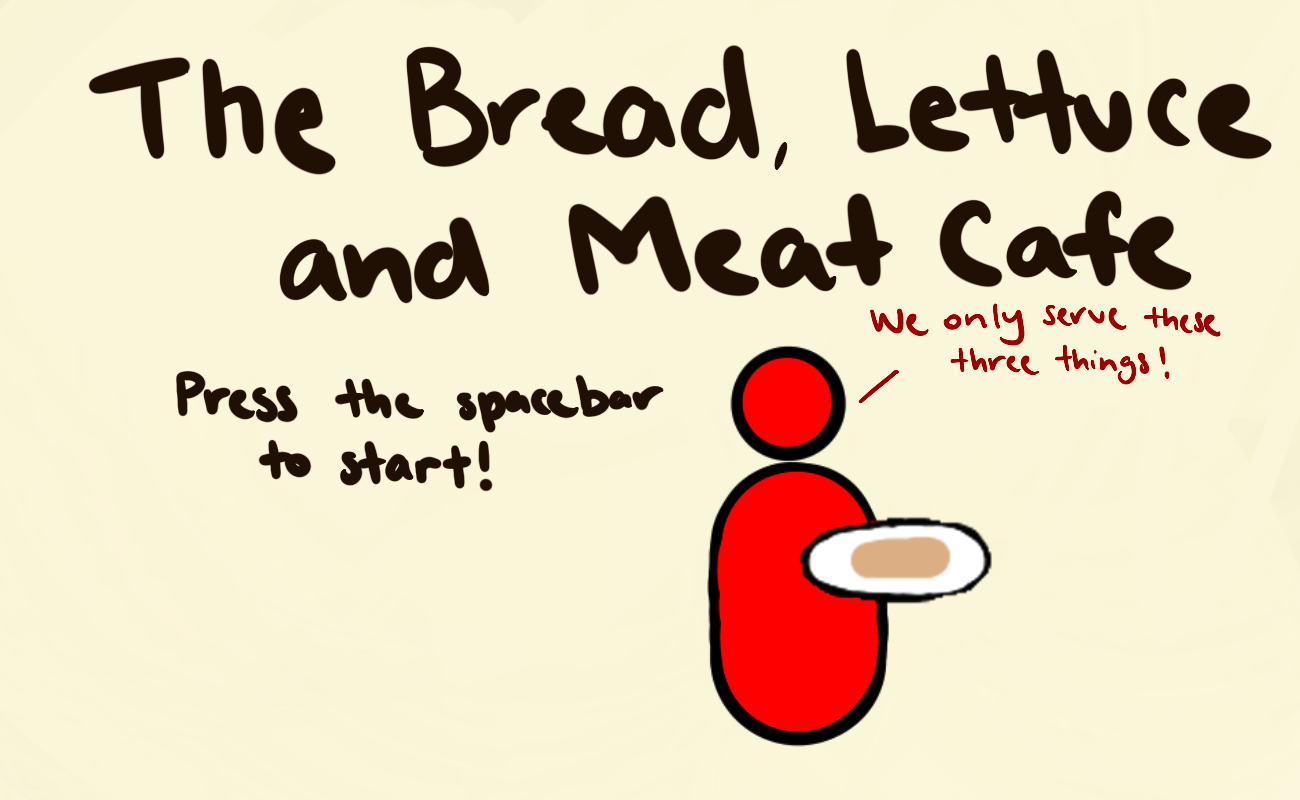 The Bread, Lettuce
and Meat Cafe
We only serve these
three things!
Press the spacebar
to start!